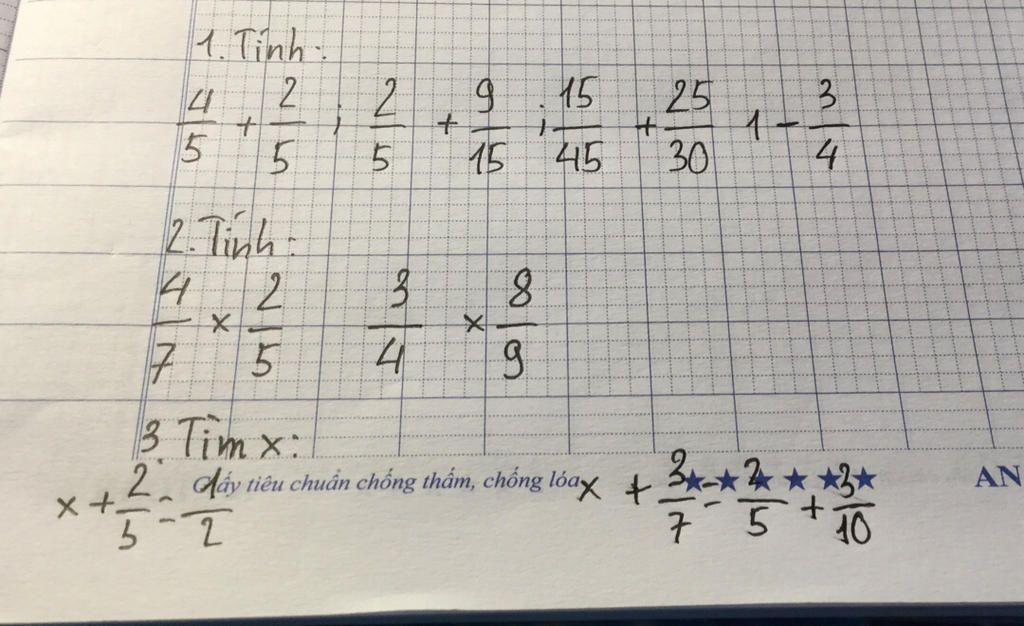 1. Tính:
4/5 + 2/5 ; 2/5 + 9/15 ; 15/45 + 25/30 1 - 3/4
2. Tính:
4/7 × 2/5 3/4 × 8/9
3. Tìm x:
Giấy tiêu chuẩn chống thấm, chống lóa ★ ★ ★ ★ ★ ★ AN
x + 2/5 = 1/2 x + 3/7 = 2/5 + 3/10